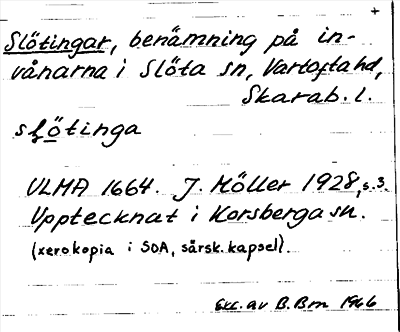 +
Slötingar, benämning på in-
vånarna i Slöta sn, Vartofta hd,
Skarab. l.
slötinga
ULMA 1664. J. Möller 1928, s. 3.
Upptecknat i Korsberga sn.
(xerokopia i SOA, särsk. kapsel).
Exc. av B. Bm 1966